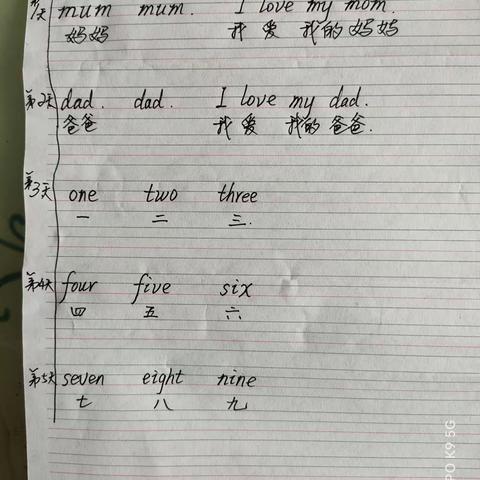 第1天 mum mum. I love my mom.
妈妈 我 爱 我的 妈妈
第2天 dad. dad. I love my dad.
爸爸 我 爱 我的 爸爸.
第3天 one two three
一 二 三.
第4天 four five six
四 五 六
第5天 seven eight nine
七 八 九
PO K9 5G